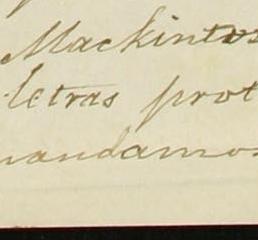 Mackintos
letras prot
mandamos